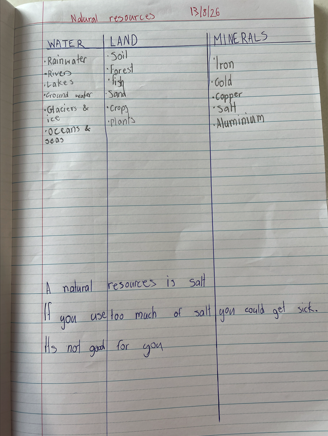 Natural resources 13/8/26
WATER LAND MINERALS
• Rainwater
• Rivers
• Lakes
• Ground water
• Glaciers &
ice
• Oceans &
seas
• Soil
• Forest
• Fish
Sand
• Crops
• Plants
• Iron
• Gold
• Copper
• Salt
• Aluminium
A natural resources is salt
If you use too much of salt you could get sick.
Its not good for you